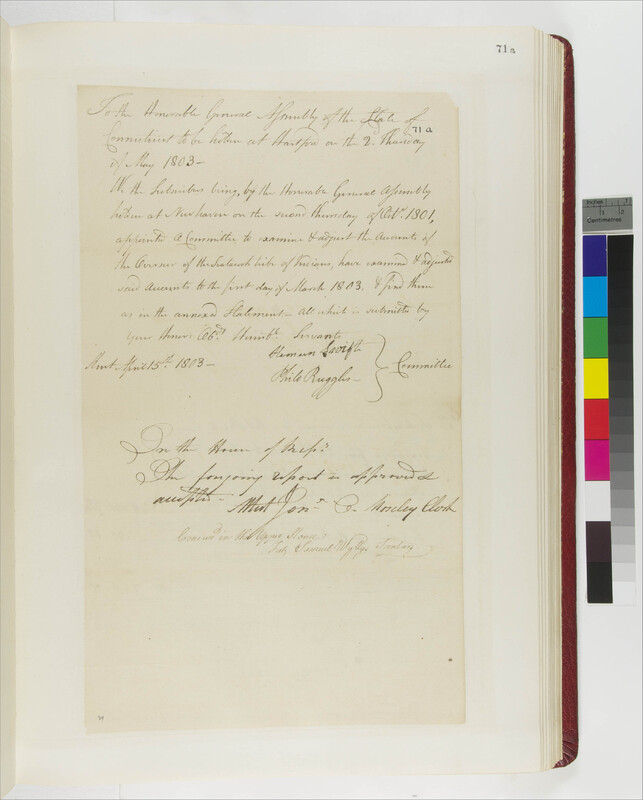 71a
To the Honorable General Assembly of the State of
71a
Connecticut to be holden at Hartford on the 2d. Thursday
of May 1803 —
We the Subscribers being, by the Honorable General Assembly
holden at New haven on the second Thursday of Octr. 1801,
appointed a Committee to examine & adjust the Accounts of
the Overseer of the tribe of Indians, have examined & adjusted
said Accounts to the first day of March 1803. & find them
as in the annexed Statement — All which is submitted by
your Honors Obdt. Humbl. Servants
Heman Swift
Kent April 15th. 1803 —
Committee
Phile Ruggles —
In the House of Reps.
The foregoing report is approved &
accepted — Attest Jona. O. Moseley Clerk
Concurred in the Upper House
Test. Samuel Wyllys Secretary
Inches
1 2
Centimetres